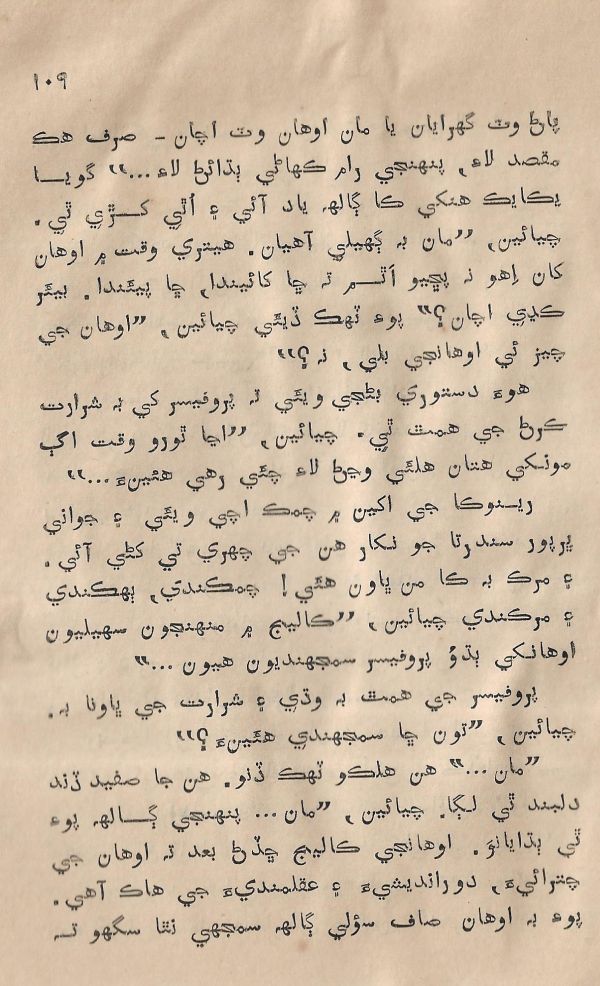 ۱۰۹
پاڻ وٽ گهرايان يا مان اوهان وٽ اچان – صرف هڪ
مقصد لاءِ, پنهنجي رام ڪهاڻي ٻڌائڻ لاءِ...“ گويا
يڪايڪ هنکي ڪا ڳالهہ ياد آئي ۽ اُٿي کڙي ٿي.
چيائين, ”مان بہ ڳهيلي آهيان. هيتري وقت ۾ اوهان
کان اِهو نہ پڇيو اٿم تہ ڇا کائيندا, ڇا پيئندا. بيئر
کڍي اچان؟“ پوءِ ٽهڪ ڏيئي چيائين, ”اوهان جي
چيز ئي اوهانجي بلي, نہ؟“
هوءَ دستوري بڻجي ويئي تہ پروفيسر کي بہ شرارت
ڪرڻ جي همٿ ٿي. چيائين, ”اڃا ٿورو وقت اڳ
مونکي هتان هلئي وڃڻ لاءِ چئي رهي هئينءَ...“
رينوڪا جي اکين ۾ چمڪ اچي ويئي ۽ جواني
ڀرپور سندرتا جو نکار هن جي چهري تي کڻي آئي.
۽ مرڪ بہ ڪا من ڀاون هئي! چمڪندي, ٻهڪندي
۽ مرڪندي چيائين, ”ڪاليج ۾ منهنجون سهيليون
اوهانکي ٻڌوُ پروفيسر سمجهنديون هيون...“
پروفيسر جي همٿ بہ وڌي ۽ شرارت جي ڀاونا بہ.
چيائين, ”تون ڇا سمجهندي هئينءَ؟“
”مان...“ هن هلڪو ٽهڪ ڏنو. هن جا صفيد ڏند
دلبند ٿي لڳا. چيائين, ”مان... پنهنجي ڳالهہ پوءِ
ٿي ٻڌايانوَ. اوهانجي ڪاليج ڇڏڻ بعد تہ اوهان جي
چترائيءَ, دورانديشيءَ ۽ عقلمنديءَ جي هاڪ آهي.
پوءِ بہ اوهان صاف سؤلي ڳالهہ سمجهي نٿا سگهو تہ